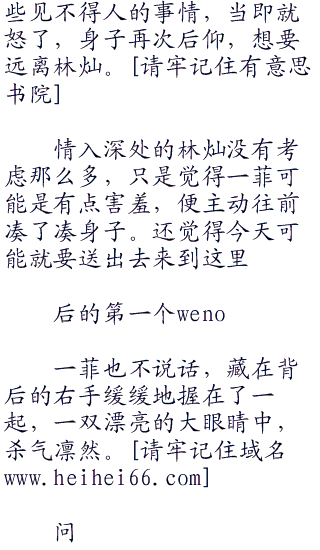 些见不得人的事情，当即就
怒了，身子再次后仰，想要
远离林灿。[请牢记住有意思
书院]
情入深处的林灿没有考
虑那么多，只是觉得一菲可
能是有点害羞，便主动往前
凑了凑身子。还觉得今天可
能就要送出去来到这里
后的第一个weno
一菲也不说话，藏在背
后的右手缓缓地握在了一
起，一双漂亮的大眼睛中，
杀气凛然。[请牢记住域名
www.heihei66.com]
问